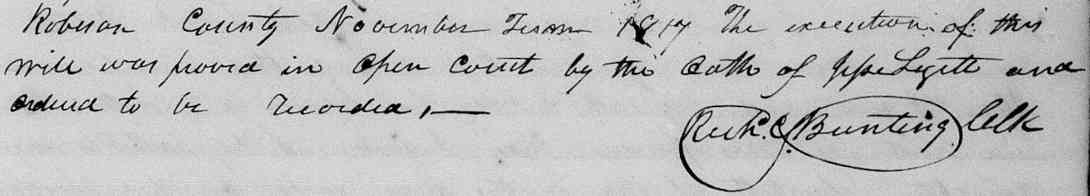 Robeson County November Term 1817 The execution of this
will was proved in Open Court by the Oath of Jesse Legett and
ordered to be recorded,—
Richd. C. Bunting Clk